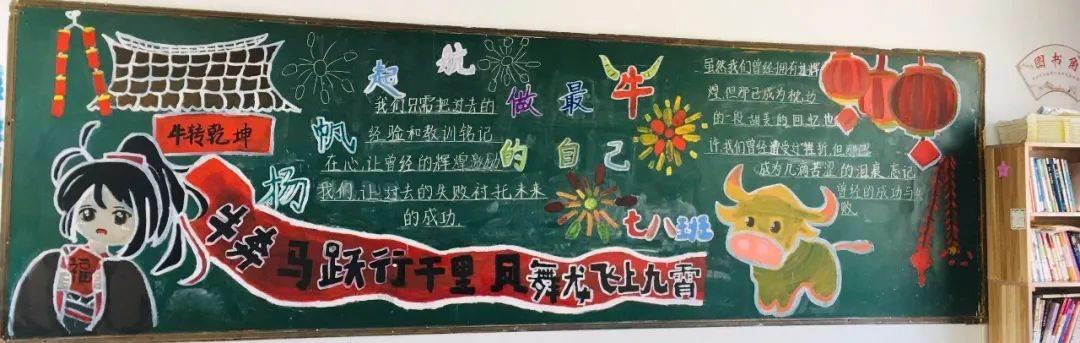 扬帆起航
做最牛的自己
七八班
牛转乾坤
福
牛奔马跃行千里 凤舞龙飞上九霄
我们只需把过去的
经验和教训铭记
在心,让曾经的辉煌激励
我们,让过去的失败衬托未来
的成功.
虽然我们曾经拥有过辉
煌,但那已成为枕边
的一段甜美的回忆也
许我们曾经遭受过挫折,但那已
成为几滴苦涩的泪痕 忘记
曾经的成功与失
败
图书角